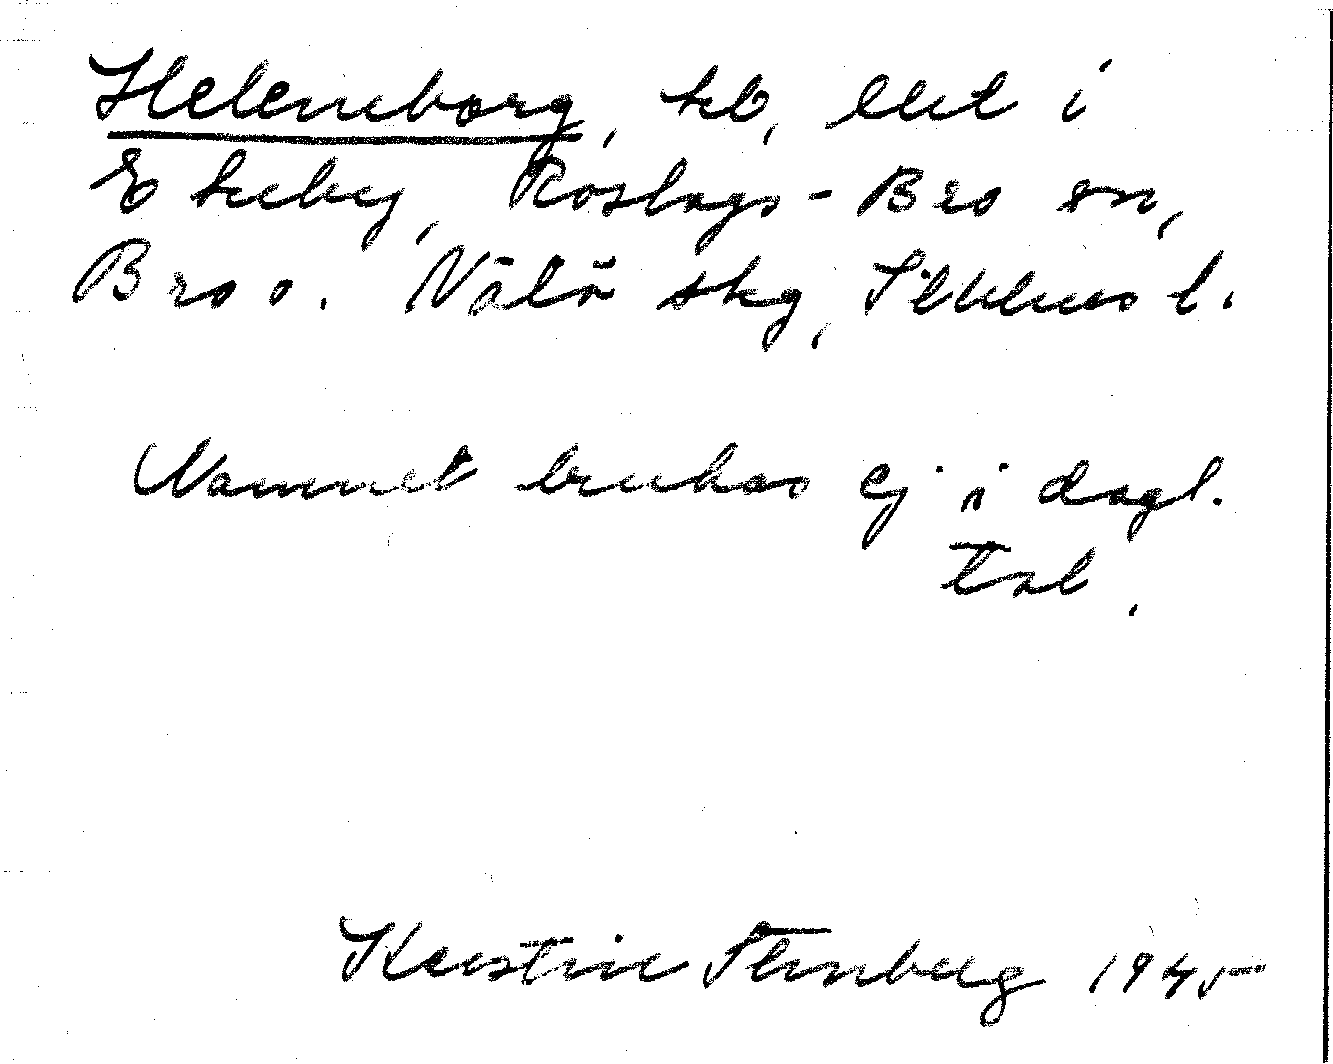 Heleneborg, tb, lht i
Ekeby, Roslags-Bro sn,
Bro o. Vätö skg, Sthlms l.
Namnet brukas ej i dagl.
tal.
Kerstin Stenberg 1945